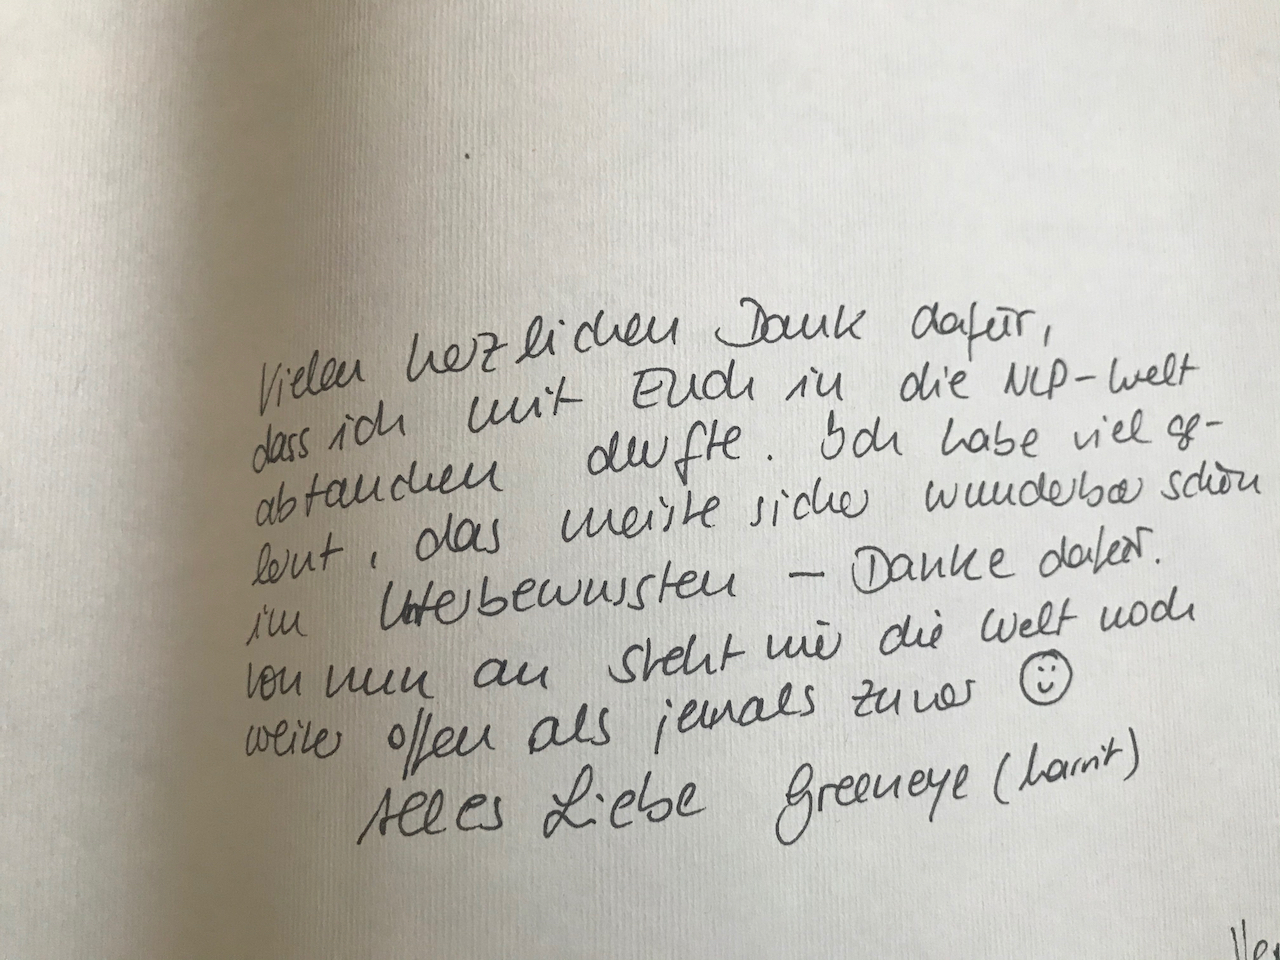 Vielen herzlichen Dank dafür,
dass ich mit Euch in die NLP-Welt
abtauchen durfte. Ich habe viel ge-
lernt, das meiste sicher wunderbar schön
im Unterbewussten – Danke dafür.
Von nun an steht mir die Welt noch
weiter offen als jemals zuvor ☺
Alles Liebe Greeneye